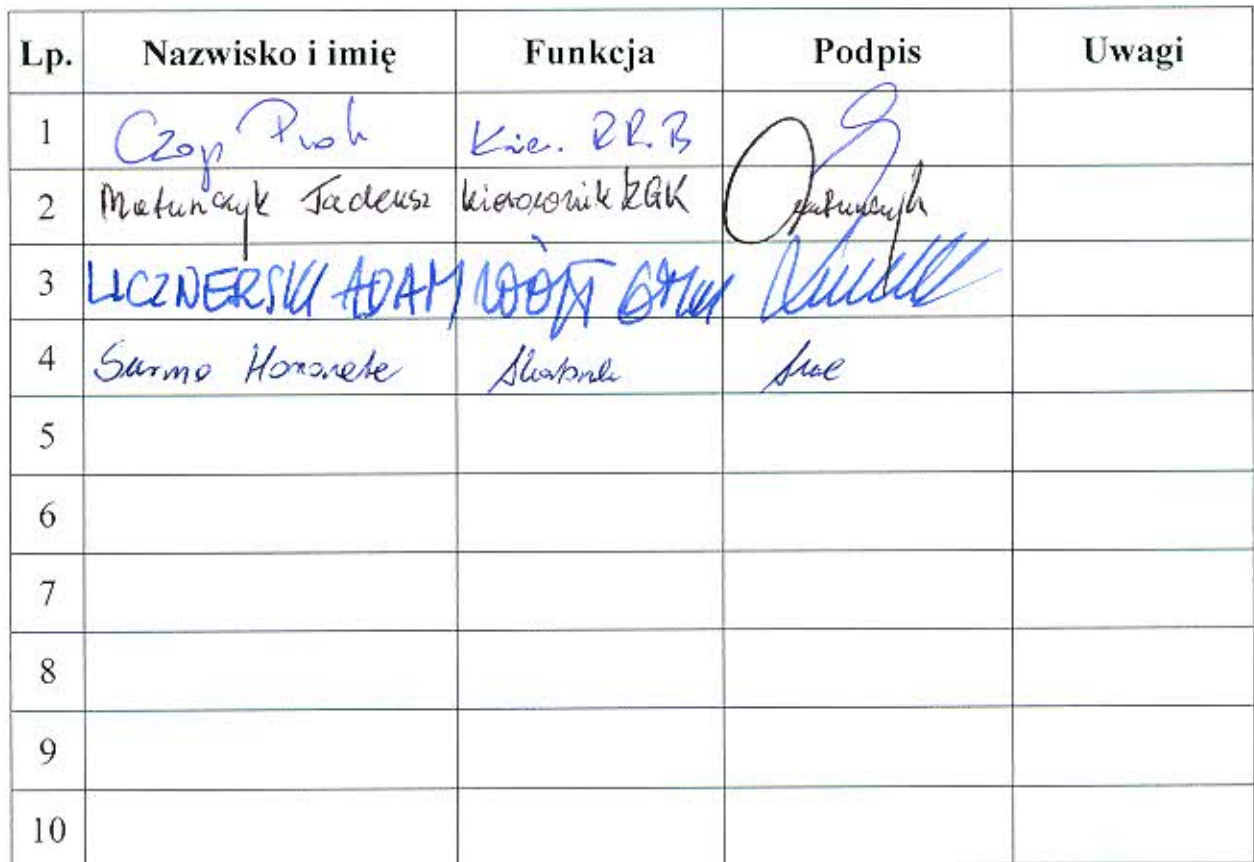 Lp. Nazwisko i imię Funkcja Podpis Uwagi
1 Czap Kie. RRB
2 Matunczyk Tadeusz kierownik ZGK Matunczyk
3 LICZNERSKI ADAM WÓJT GMINY
4 Surma Honorata Skarbnik
5
6
7
8
9
10